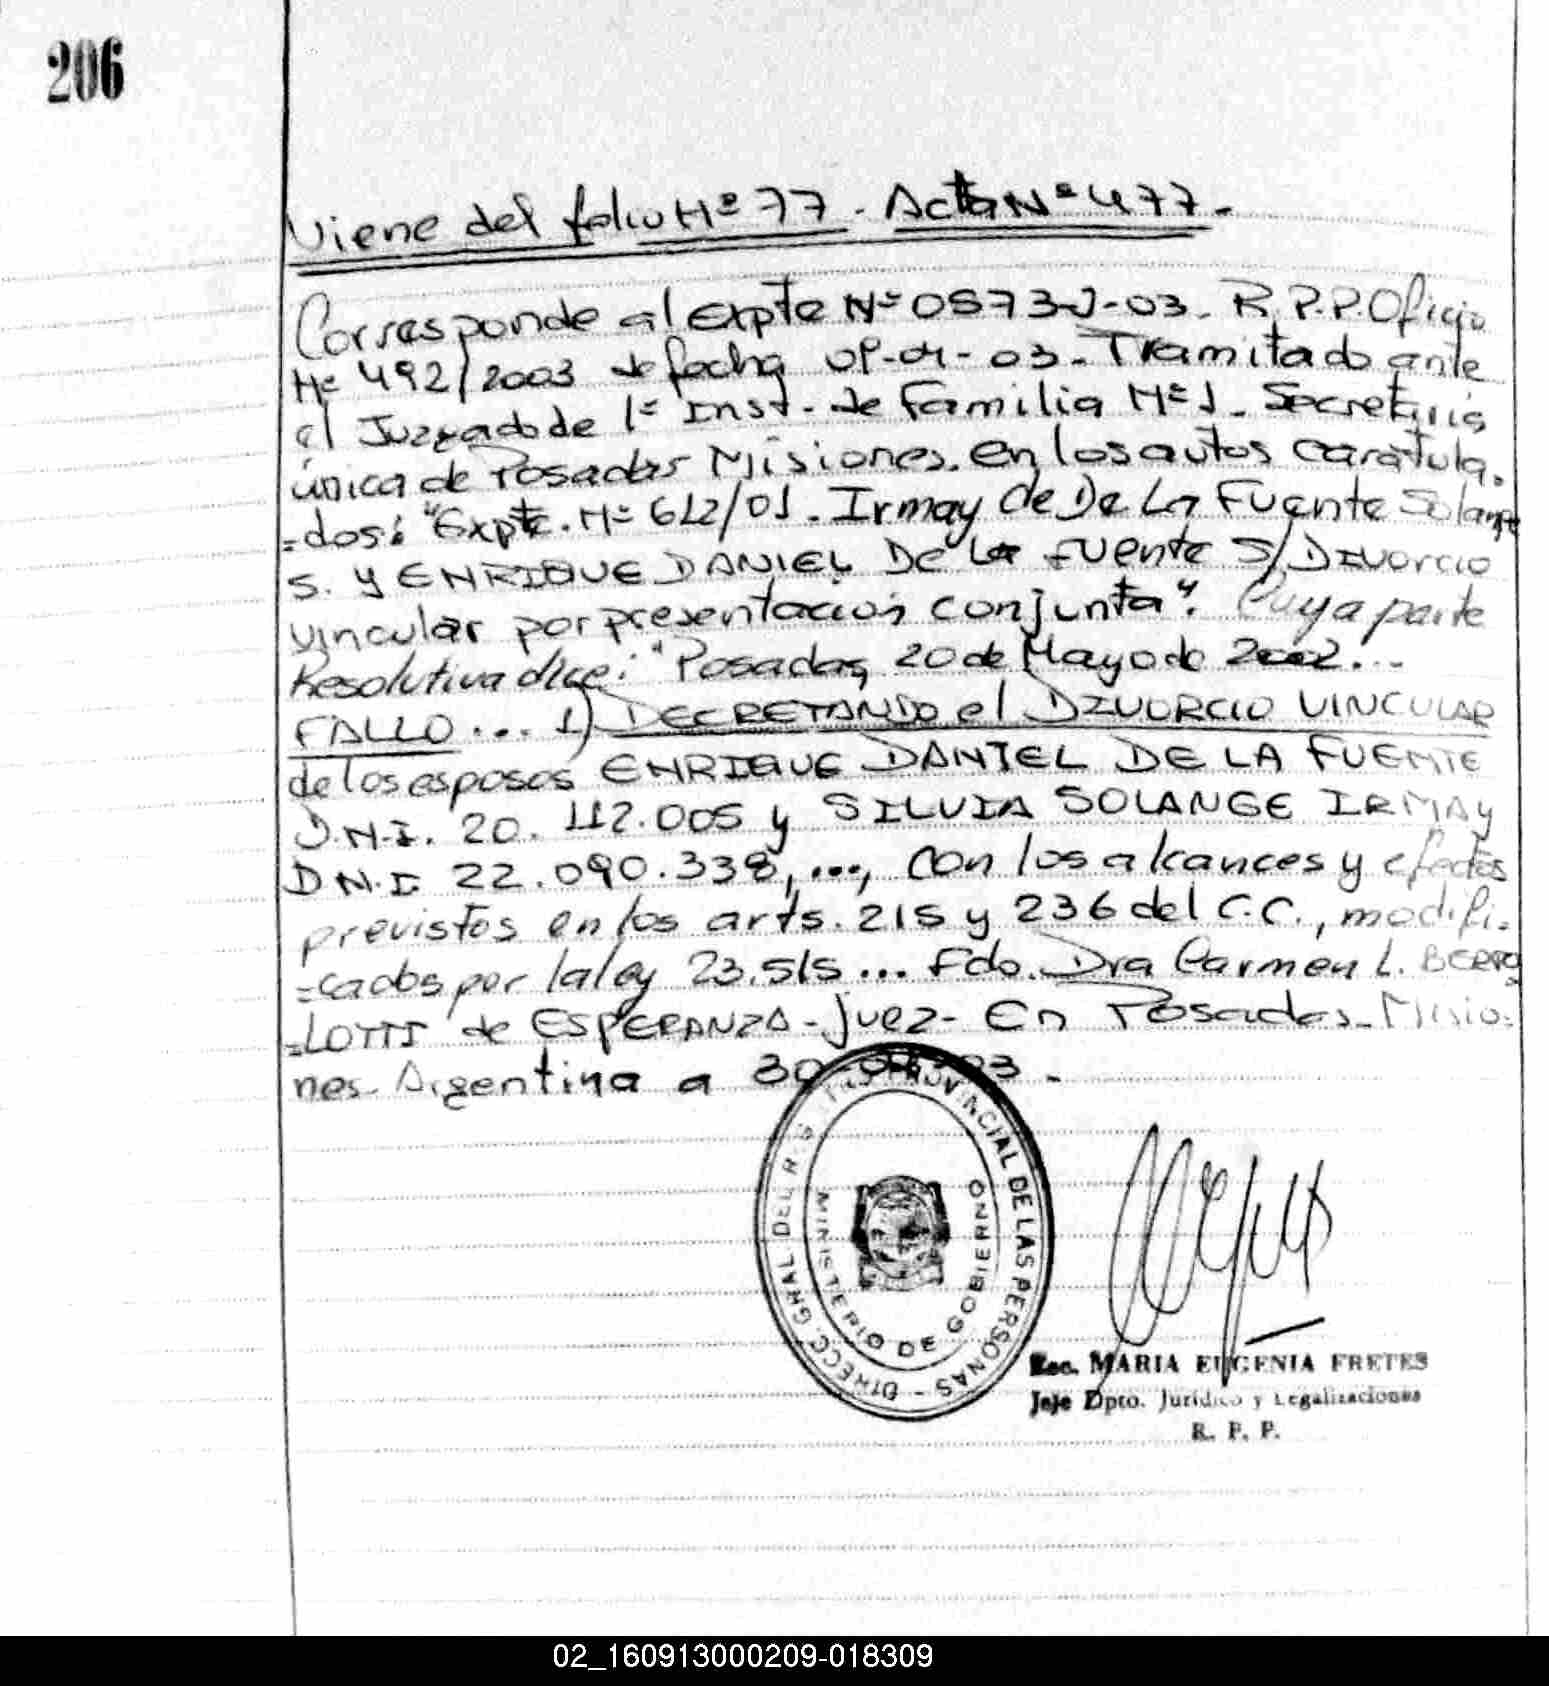 206
Viene del folio Nº 77. Acta Nº 477.
Corresponde al Expte Nº 0573-J-03. R.P.P. Oficio
Nº 492/2003 de fecha 09-04-03. Tramitado ante
el Juzgado de 1º Inst. de Familia Nº 1. Secretaria
única de Posadas Misiones. en los autos caratula.
=dos: "Expte. Nº 612/01. Irmay de De La Fuente Solange
S. y ENRIQUE DANIEL De La Fuente S/ Divorcio
vincular por presentación conjunta". Cuya parte
Resolutiva dice: "Posadas, 20 de Mayo de 2002...
FALLO... 1) DECRETANDO el DIVORCIO VINCULAR
de los esposos ENRIQUE DANIEL DE LA FUENTE
D.N.I. 20.112.005 y SILVIA SOLANGE IRMAY
D.N.I. 22.090.338, ..., con los alcances y efectos
previstos en los arts. 215 y 236 del C.C., modifi.
=cados por la ley 23.515... Fdo. Dra Carmen L. BERGO
=LOTTI de ESPERANZA - Juez - En Posadas - Misio.
nes. Argentina a 30
DIRECC. GRAL DEL PROVINCIAL DE LAS PERSONAS
MINISTERIO DE GOBIERNO
Esc. MARIA EUGENIA FRETES
Jefe Dpto. Jurídico y Legalizaciones
R. P. P.
02_160913000209-018309